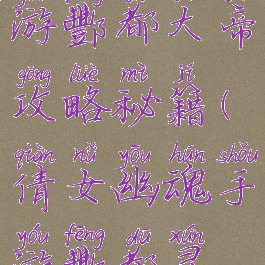 游酆都大帝
gōng lüè mì jí
攻略秘籍(
qiàn nǚ yōu hún shǒu
倩女幽魂手
yóu fēng dū xún
游酆都寻